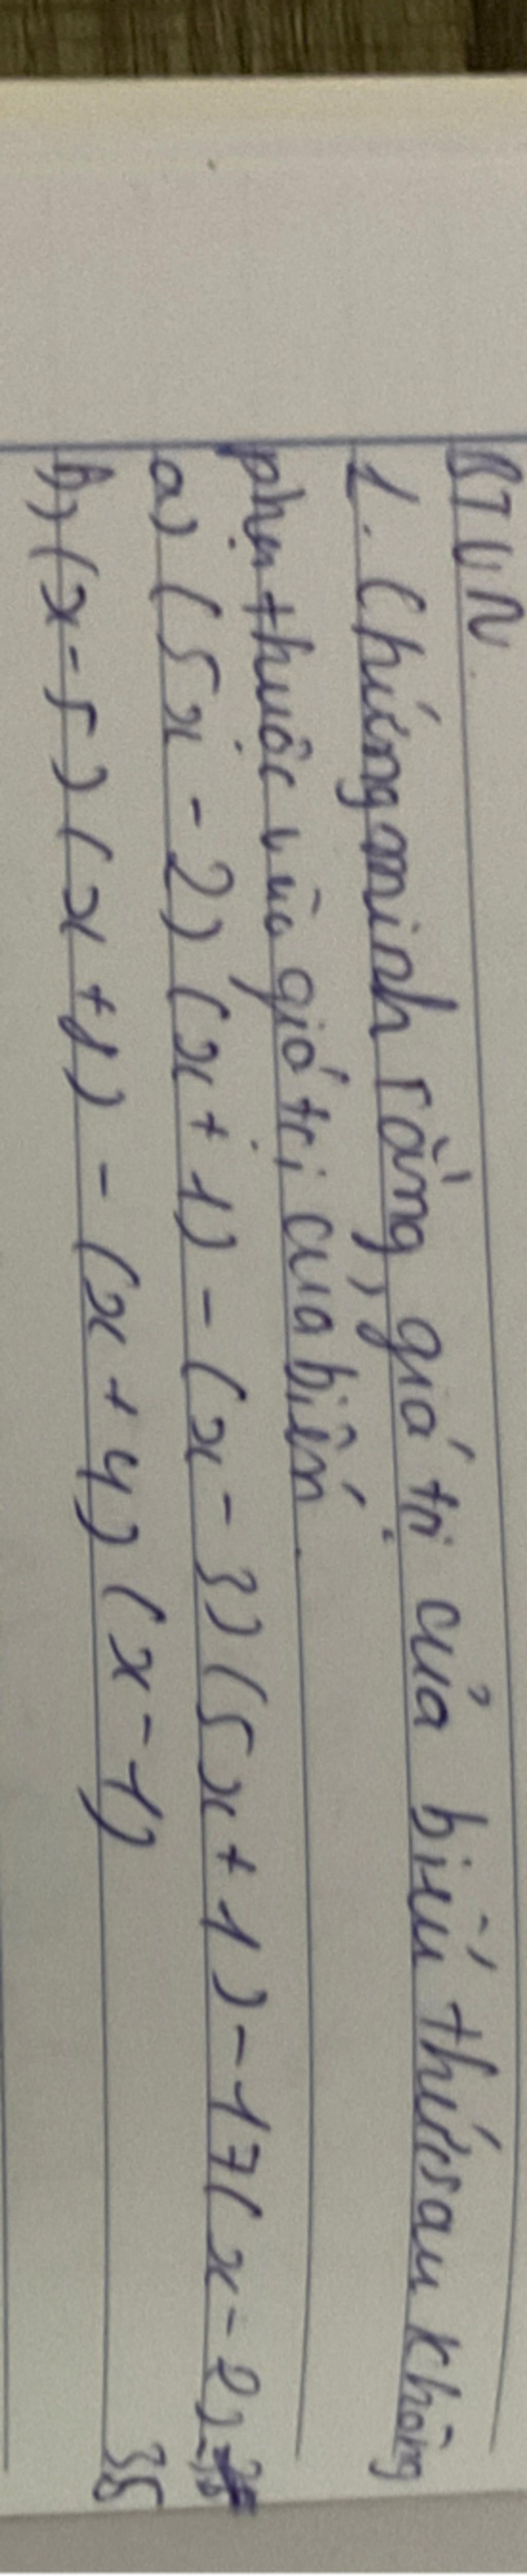 BTVN
1. Chứng minh rằng, giá trị của biểu thức sau không
phụ thuộc vào giá trị của biến.
a) (5x - 2) (x + 1) - (x - 3) (5x + 1) - 17(x - 2)
b) (x - 5) (x + 1) - (x + 4) (x - 1)